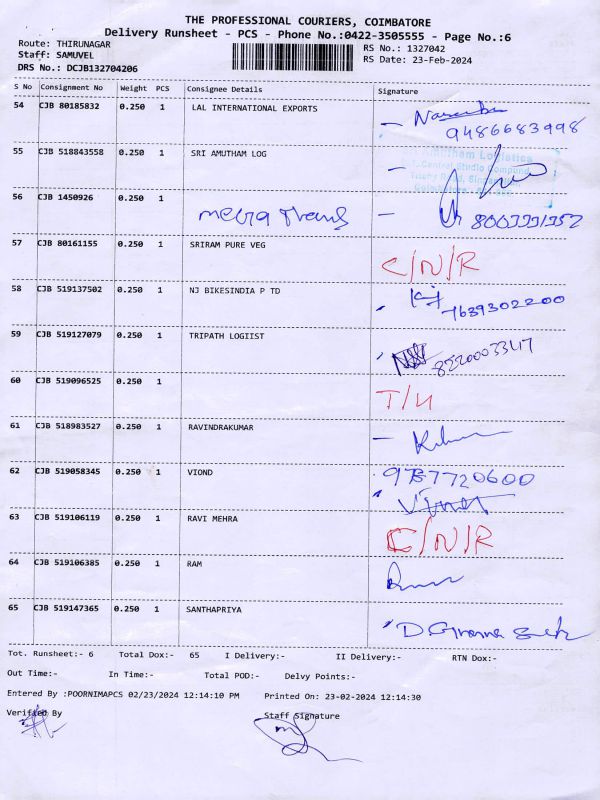 THE PROFESSIONAL COURIERS, COIMBATORE
Delivery Runsheet - PCS - Phone No.:0422-3505555 - Page No.:6
Route: THIRUNAGAR RS No.: 1327042
Staff: SAMUVEL RS Date: 23-Feb-2024
DRS No.: DCJB132704206
S No Consignment No Weight PCS Consignee Details Signature
54 CJB 80185832 0.250 1 LAL INTERNATIONAL EXPORTS
9486683998
55 CJB 518843558 0.250 1 SRI AMUTHAM LOG
Amutham Logistics
Central Studio Compound
Trichy Road, Singanallur
56 CJB 1450926 0.250 1 -
57 CJB 80161155 0.250 1 SRIRAM PURE VEG C/N/R
58 CJB 519137502 0.250 1 NJ BIKESINDIA P TD
7639302200
59 CJB 519127079 0.250 1 TRIPATH LOGIIST
60 CJB 519096525 0.250 1 T/U
61 CJB 518983527 0.250 1 RAVINDRAKUMAR -
62 CJB 519058345 0.250 1 VIOND
63 CJB 519106119 0.250 1 RAVI MEHRA C/N/R
64 CJB 519106385 0.250 1 RAM
65 CJB 519147365 0.250 1 SANTHAPRIYA
Tot. Runsheet:- 6 Total Dox:- 65 I Delivery:- II Delivery:- RTN Dox:-
Out Time:- In Time:- Total POD:- Delvy Points:-
Entered By :POORNIMAPCS 02/23/2024 12:14:10 PM Printed On: 23-02-2024 12:14:30
Verified By Staff Signature